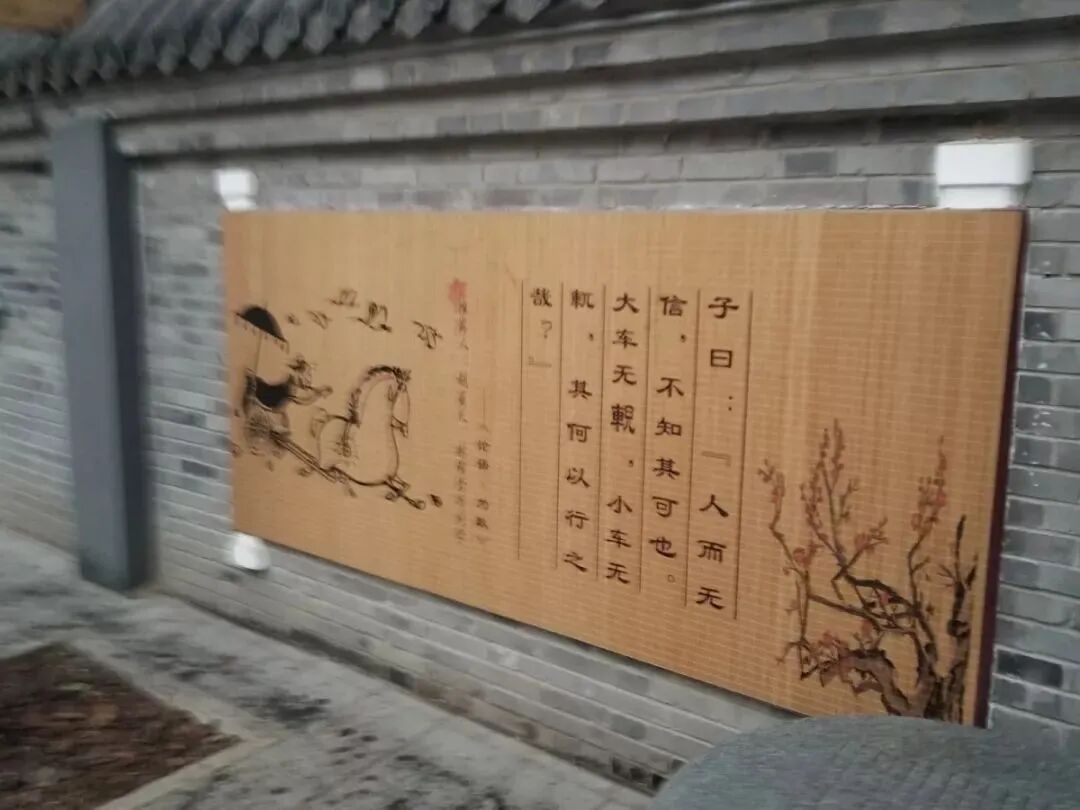 子曰：『人而无
信，不知其可也。
大车无輗，小车无
軏，其何以行之
哉？』
——《论语·为政》